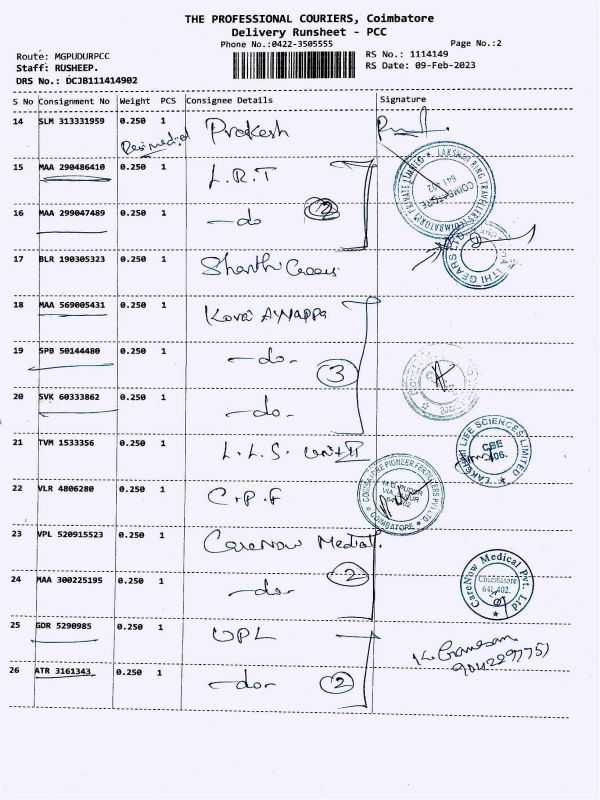 THE PROFESSIONAL COURIERS, Coimbatore
Delivery Runsheet - PCC
Phone No.:0422-3505555
Page No.:2
Route: MGPUDURPCC
RS No.: 1114149
Staff: RUSHEEP.
RS Date: 09-Feb-2023
DRS No.: DCJB111414902
S No Consignment No Weight PCS Consignee Details Signature
14 SLM 313331959 0.250 1 Prakash
15 MAA 290486410 0.250 1 L.R.T
16 MAA 299047489 0.250 1 -do 2
17 BLR 190305323 0.250 1 Shanthi Gears
18 MAA 569005431 0.250 1 Kovai Ayyappa
19 SPB 50144480 0.250 1 -do- 3
20 SVK 60333862 0.250 1 -do-
21 TVM 1533356 0.250 1 L.L.S. UNIT II
22 VLR 4806280 0.250 1 C.P.F
23 VPL 520915523 0.250 1 CareNow Medical.
24 MAA 300225195 0.250 1 -do- 2
25 GDR 5290985 0.250 1 UPL
26 ATR 3161343 0.250 1 -do- 2
LAKSHMI RING TRAVELLERS (COIMBATORE) PRIVATE LIMITED
COIMBATORE
641 402
GEARS LTD
LAKSHMI LIFE SCIENCES LIMITED
CBE
COIMBATORE PIONEER FERTILIZERS PVT LTD
M.G. PUDUR
VIA
COIMBATORE
CareNow Medical Pvt. Ltd
Coimbatore
641 402.
K. Ganesan